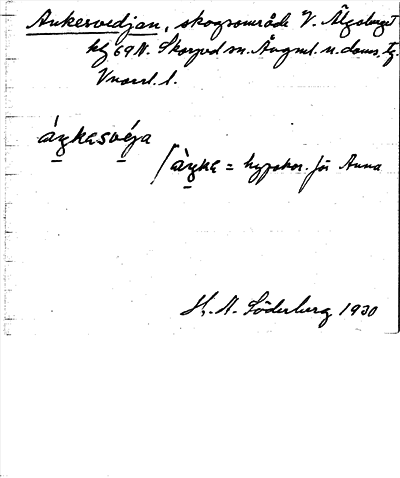 Ankesvedjan, skogsområde V. Älgsberget
kf 69 N. Skorped sn. Ångml. n. doms. tg.
Vnorrl. l.
áŋkasvéja
/àŋka = hypokor. för Anna
H. A. Söderberg 1930